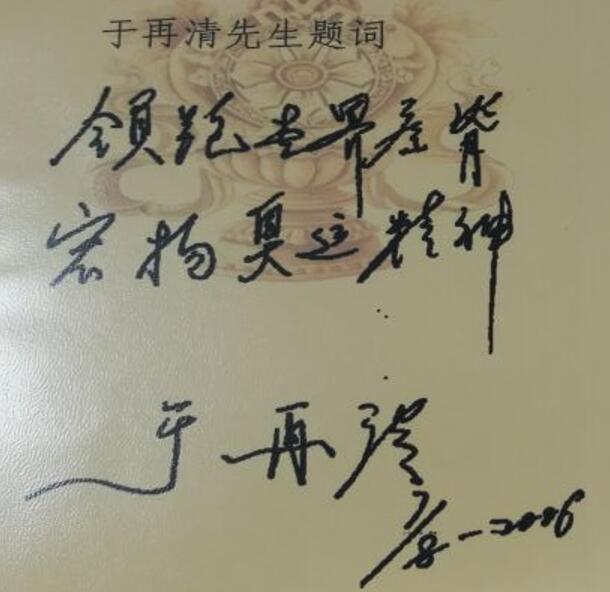 于再清先生题词
领跑世界屋脊
宏扬奥运精神
于再清
7/8-2006